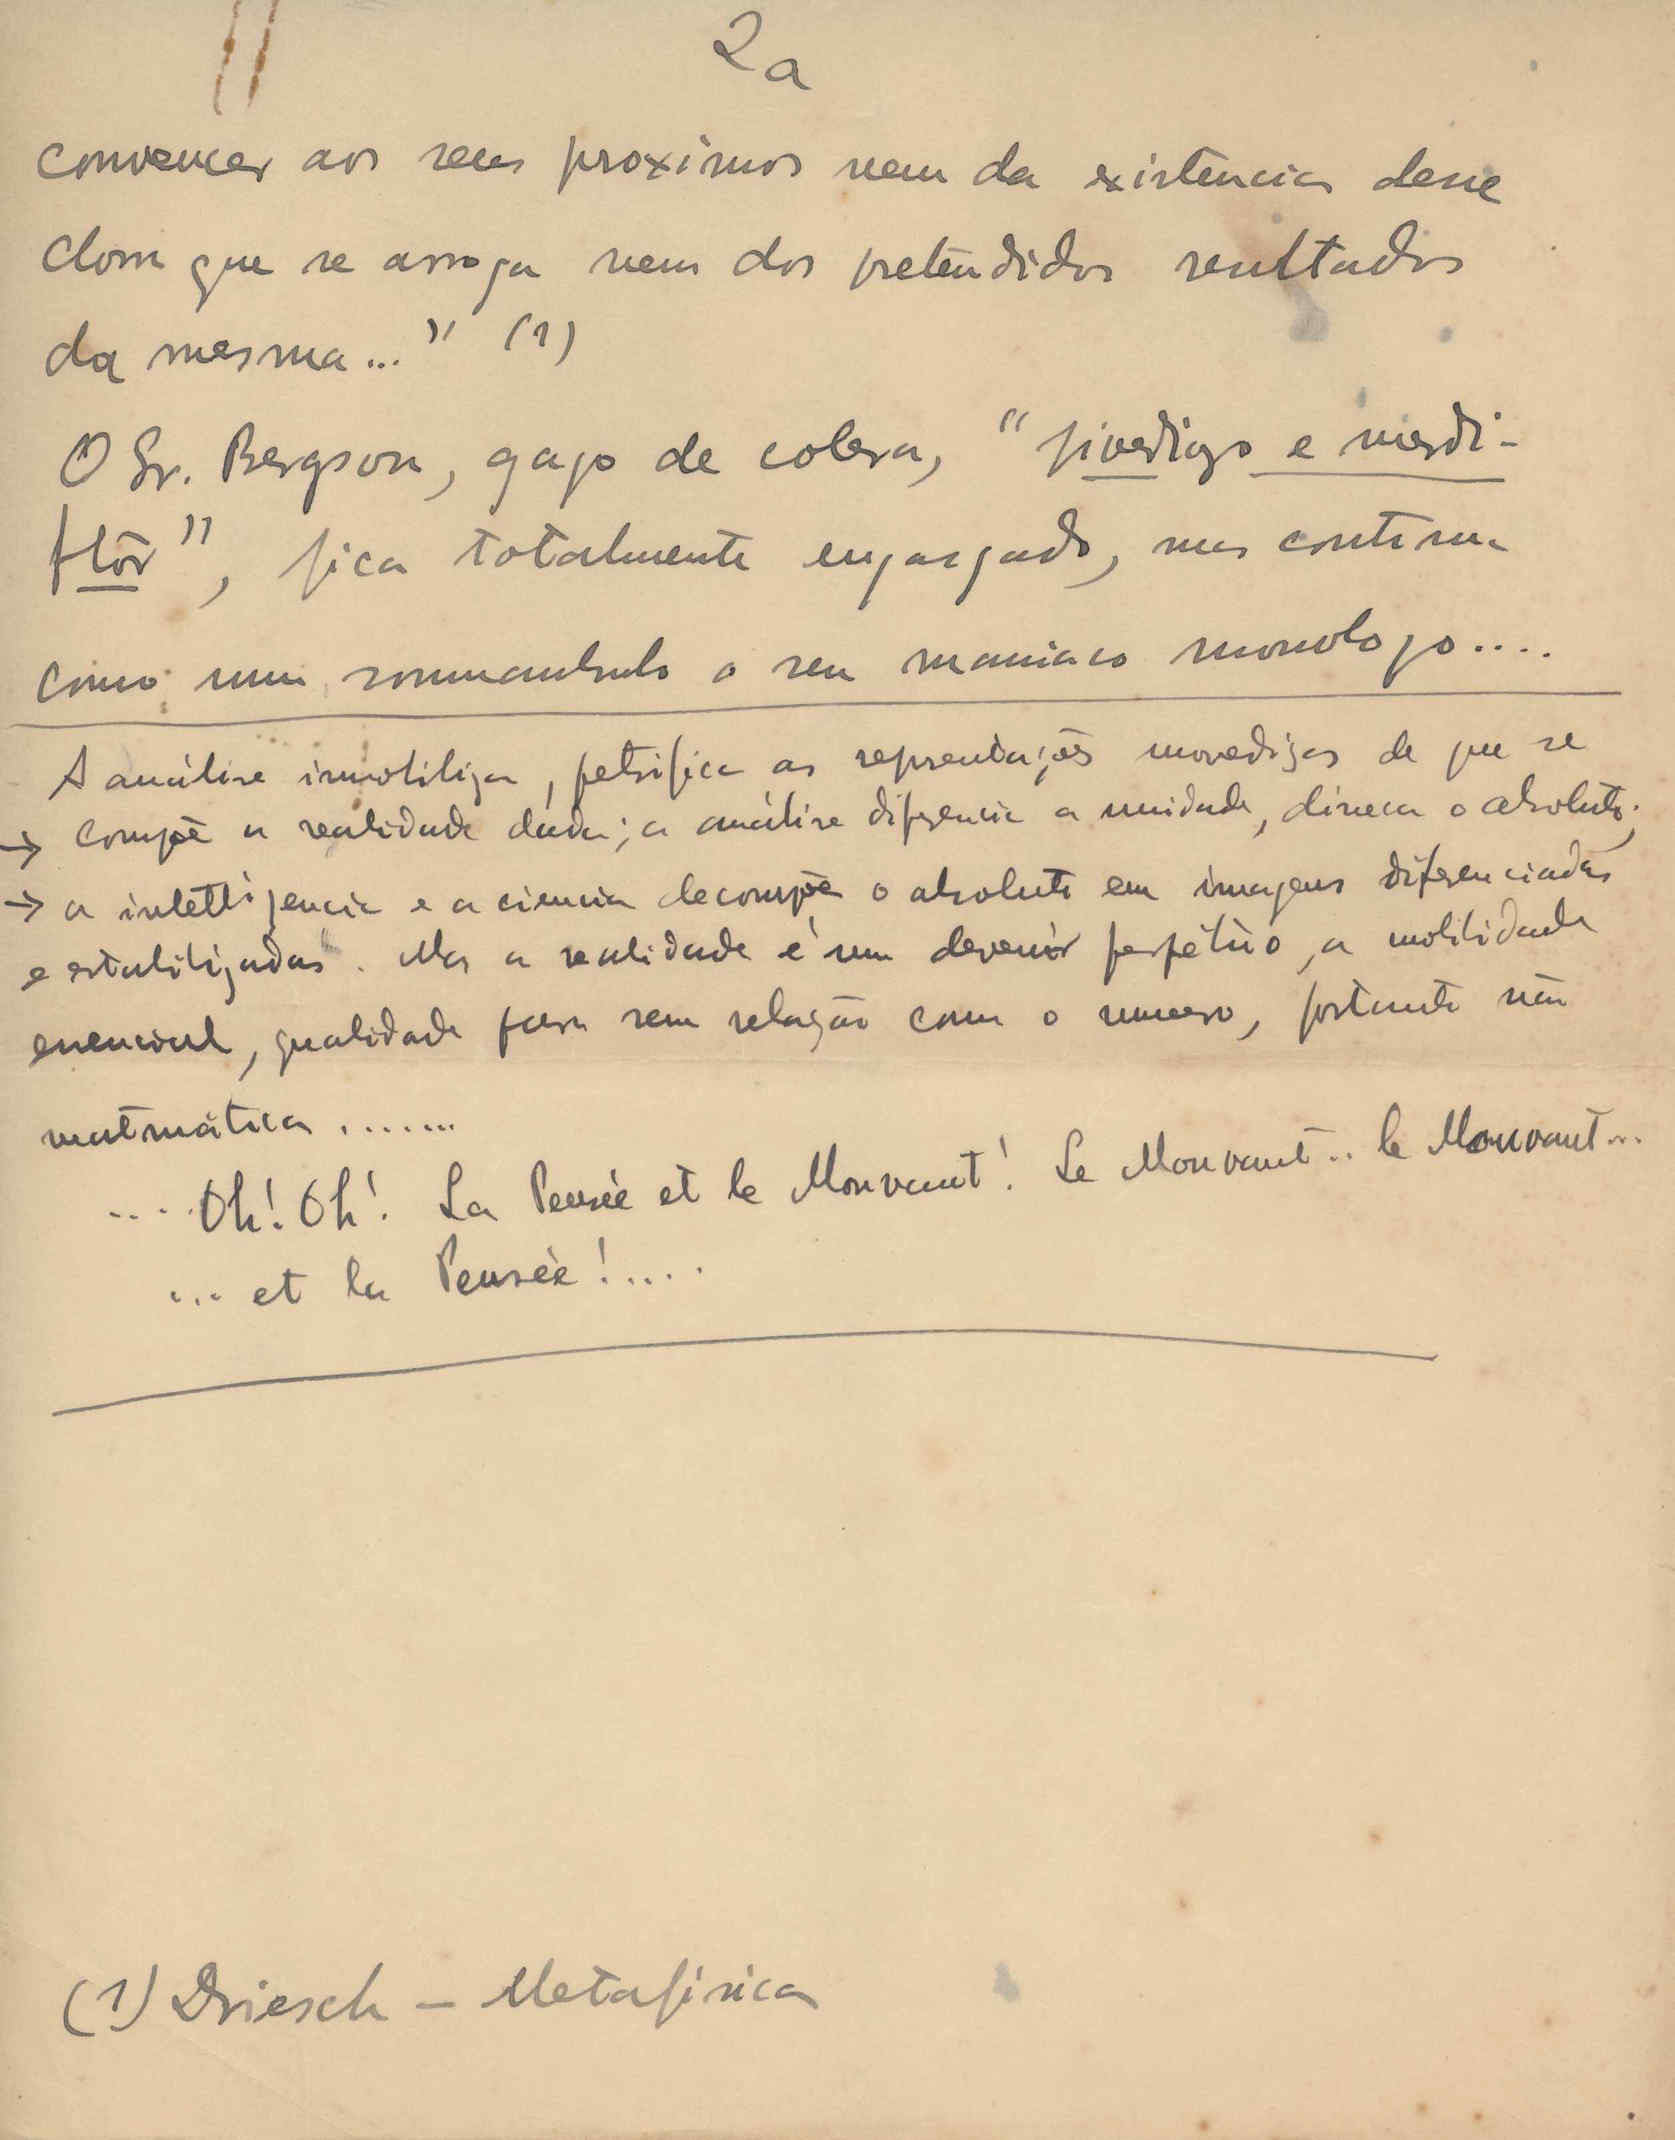 2a
convencer aos seus proximos nem da existencia desse
dom que se arroga nem dos pretendidos resultados
da mesma..." (1)
O Sr. Bergson, gago de colera, " e verdi-
", fica totalmente engasgado, mas continua
como um somnambulo o seu maniaco monologo....
A análise immobiliza, petrifica as representações movediças de que se
→ compõe a realidade dada; a análise diferencia a unidade, disseca o absoluto;
→ a intelligencia e a ciencia decompõe o absoluto em imagens diferenciadas
e estabilizadas. Mas a realidade é um devenir perpétuo, a mobilidade
essencial, qualidade pura sem relação com o numero, portanto não
matmática .......
.... Oh! Oh! La Pensée et le Mouvant! Le Mouvant.. le Mouvant...
... et la Pensée!....
(1) Driesch - Metafisica